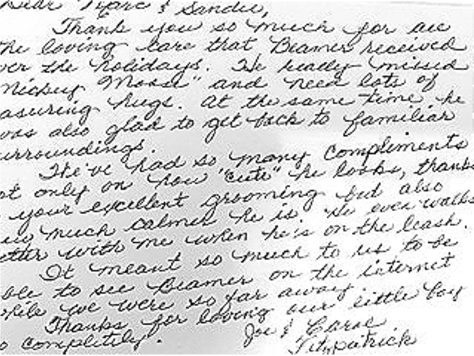 Dear Marc & Sandie,
Thank you so much for all
the loving care that Beamer received
over the holidays. He really missed
"Mickey Moose" and need lots of
assuring hugs. At the same time, he
was also glad to get back to familiar
surroundings.
We've had so many compliments
not only on how "cute" he looks, thanks
your excellent grooming but also
how much calmer he is. He even walks
better with me when he's on the leash.
It meant so much to us to be
able to see Beamer on the internet
while we were so far away.
Thanks for loving our little boy
so completely.
Joe & Carol
Fitzpatrick